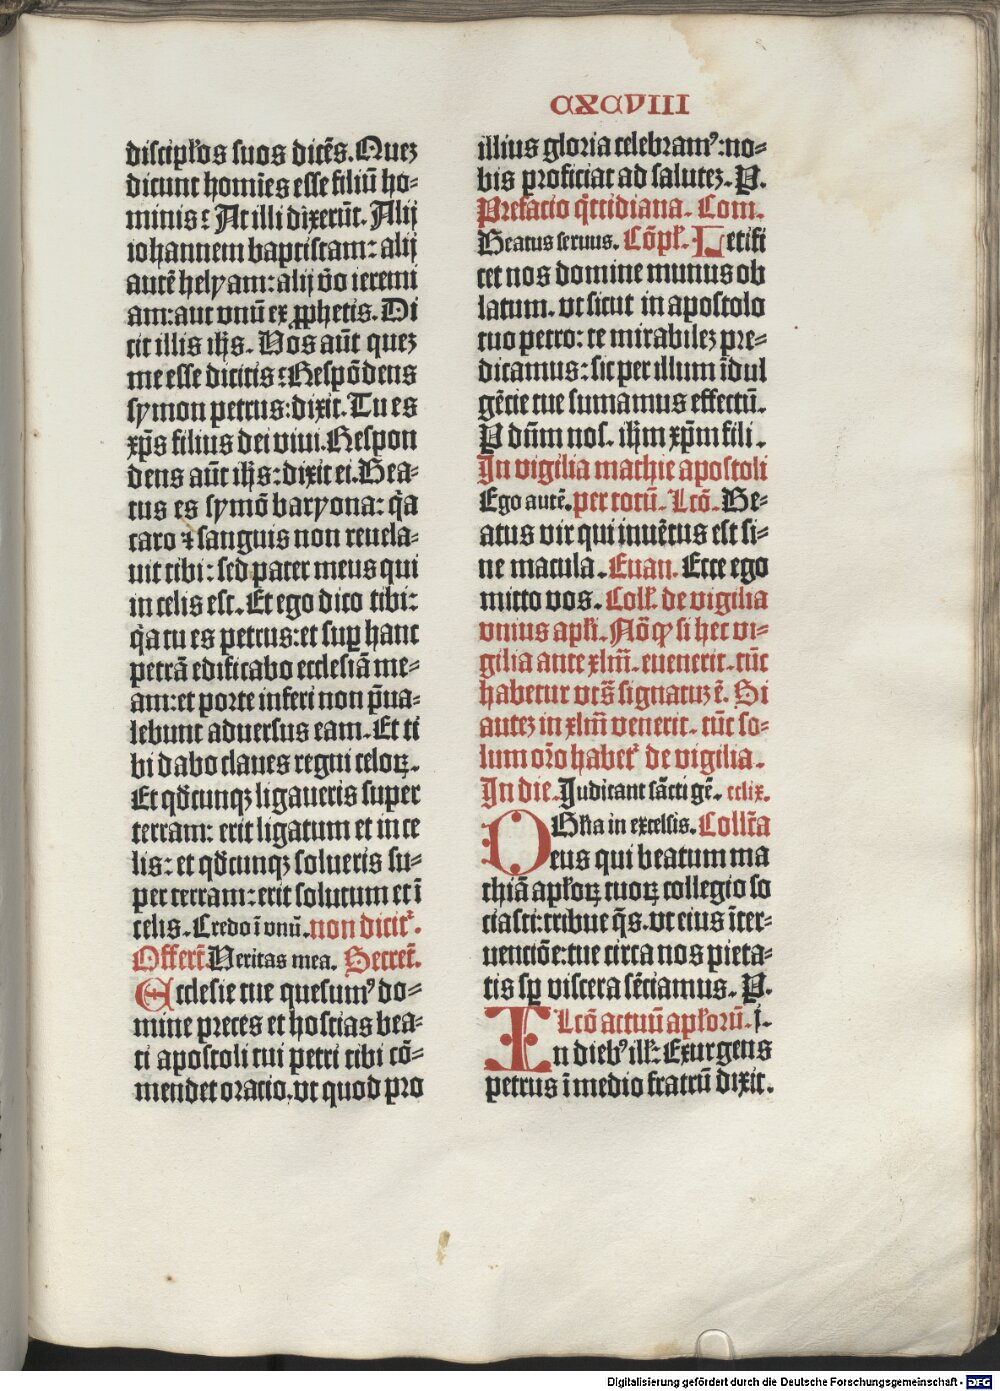 CXCVIII
discipłos suos dicēs. Quez
dicunt homīes esse filiū ho-
minis? At illi dixerūt. Alij
iohannem baptistam: alij
autē helyam: alij v̄o ieremi
am: aut vnū ex ꝓphetis. Di
cit illis ih̄s. Vos aūt quez
me esse dicitis? Respōdens
symon petrus: dixit. Tu es
xp̄s filius dei viui. Respon
dens aūt ih̄s: dixit ei. Bea-
tus es symō baryona: q̄a
caro ⁊ sanguis non reuela-
uit tibi: sed pater meus qui
in celis est. Et ego dico tibi:
q̄a tu es petrus: et suꝑ hanc
petrā edificabo ecclesiā me-
am: et porte inferi non p̄ua-
lebunt aduersus eam. Et ti
bi dabo claues regni celoꝝ.
Et qd̄cunqꝫ ligaueris super
terram: erit ligatum et in ce
lis: et qd̄cunqꝫ solueris su-
per terram: erit solutum et ī
celis. Credo ī vnū. non dicit᷑.
Offert̄ Veritas mea. Secret̄.
Ecclesie tue quesumꝰ do-
mine preces et hostias bea-
ti apostoli tui petri tibi cō-
mendet oratio. vt quod pro
illius gloria celebramꝰ: no-
bis proficiat ad salutez. P.
Prefacio q̄ttidiana. Com.
Beatus seruus. Cōpł. Letifi
cet nos domine munus ob
latum. vt sicut in apostolo
tuo petro: te mirabilez pre-
dicamus: sic per illum īdul
gētie tue sumamus effectū.
P dūm nos. ih̄m xp̄m fili.
In vigilia mathie apostoli
Ego autē. per totū. Lcō. Be-
atus vir qui inuētus est si-
ne macula. Euan. Ecce ego
mitto vos. Coll̄. de vigilia
vnius apłi. Nō qꝫ si hec vi-
gilia ante xlm̄. euenerit. tūc
habetur vts̄ signatuz ē. Si
autez in xlm̄ venerit. tūc so-
lum or̄o habet᷑ de vigilia.
In die. Judicant sācti gē. cclix.
Gl̄ia in excelsis. Collc̄ta
Deus qui beatum ma
thiā apłoꝝ tuoꝝ collegio so
ciasti: tribue q̄s. vt eius īter-
uentiōe: tue circa nos pieta-
tis sꝑ viscera sētiamus. P.
Lcō actuū apłorū. j.
In diebꝰ ill̄: Exurgens
petrus ī medio fratrū dixit.
Digitalisierung gefördert durch die Deutsche Forschungsgemeinschaft - DFG